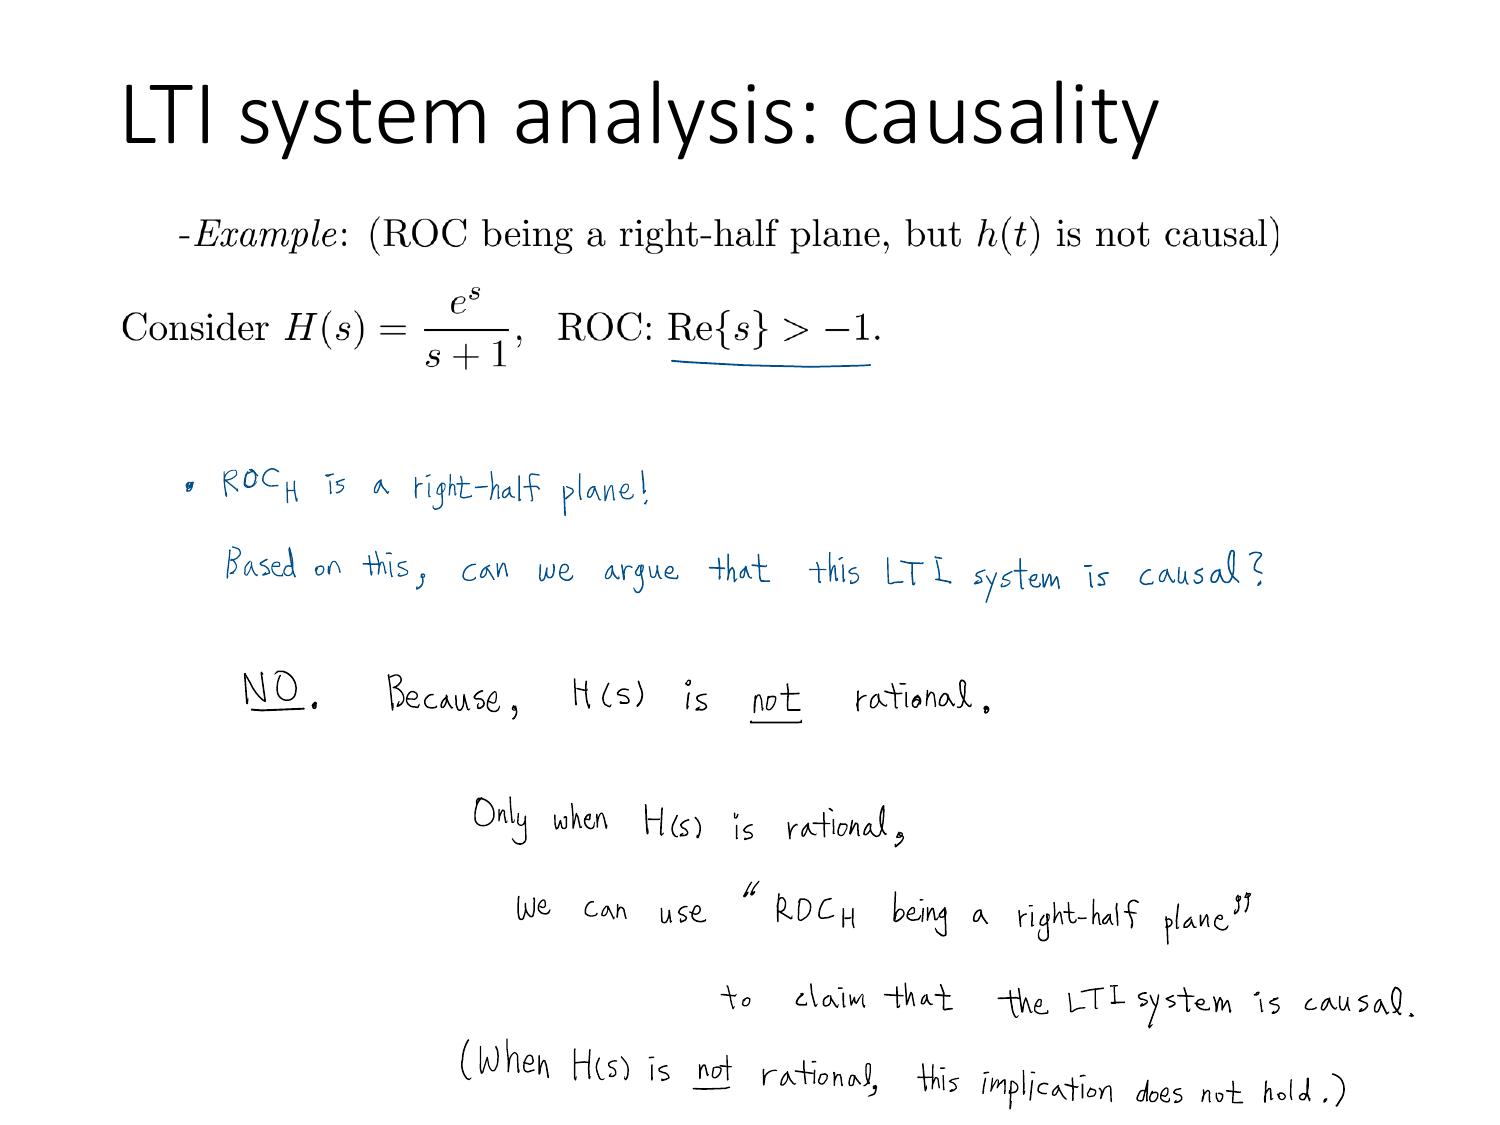 LTI system analysis: causality
-Example: (ROC being a right-half plane, but h(t) is not causal)
Consider H(s) = e^s / (s + 1), ROC: Re{s} > −1.
• ROC_H is a right-half plane!
Based on this, can we argue that this LTI system is causal?
NO. Because, H(s) is not rational.
Only when H(s) is rational,
we can use "ROC_H being a right-half plane"
to claim that the LTI system is causal.
(When H(s) is not rational, this implication does not hold.)